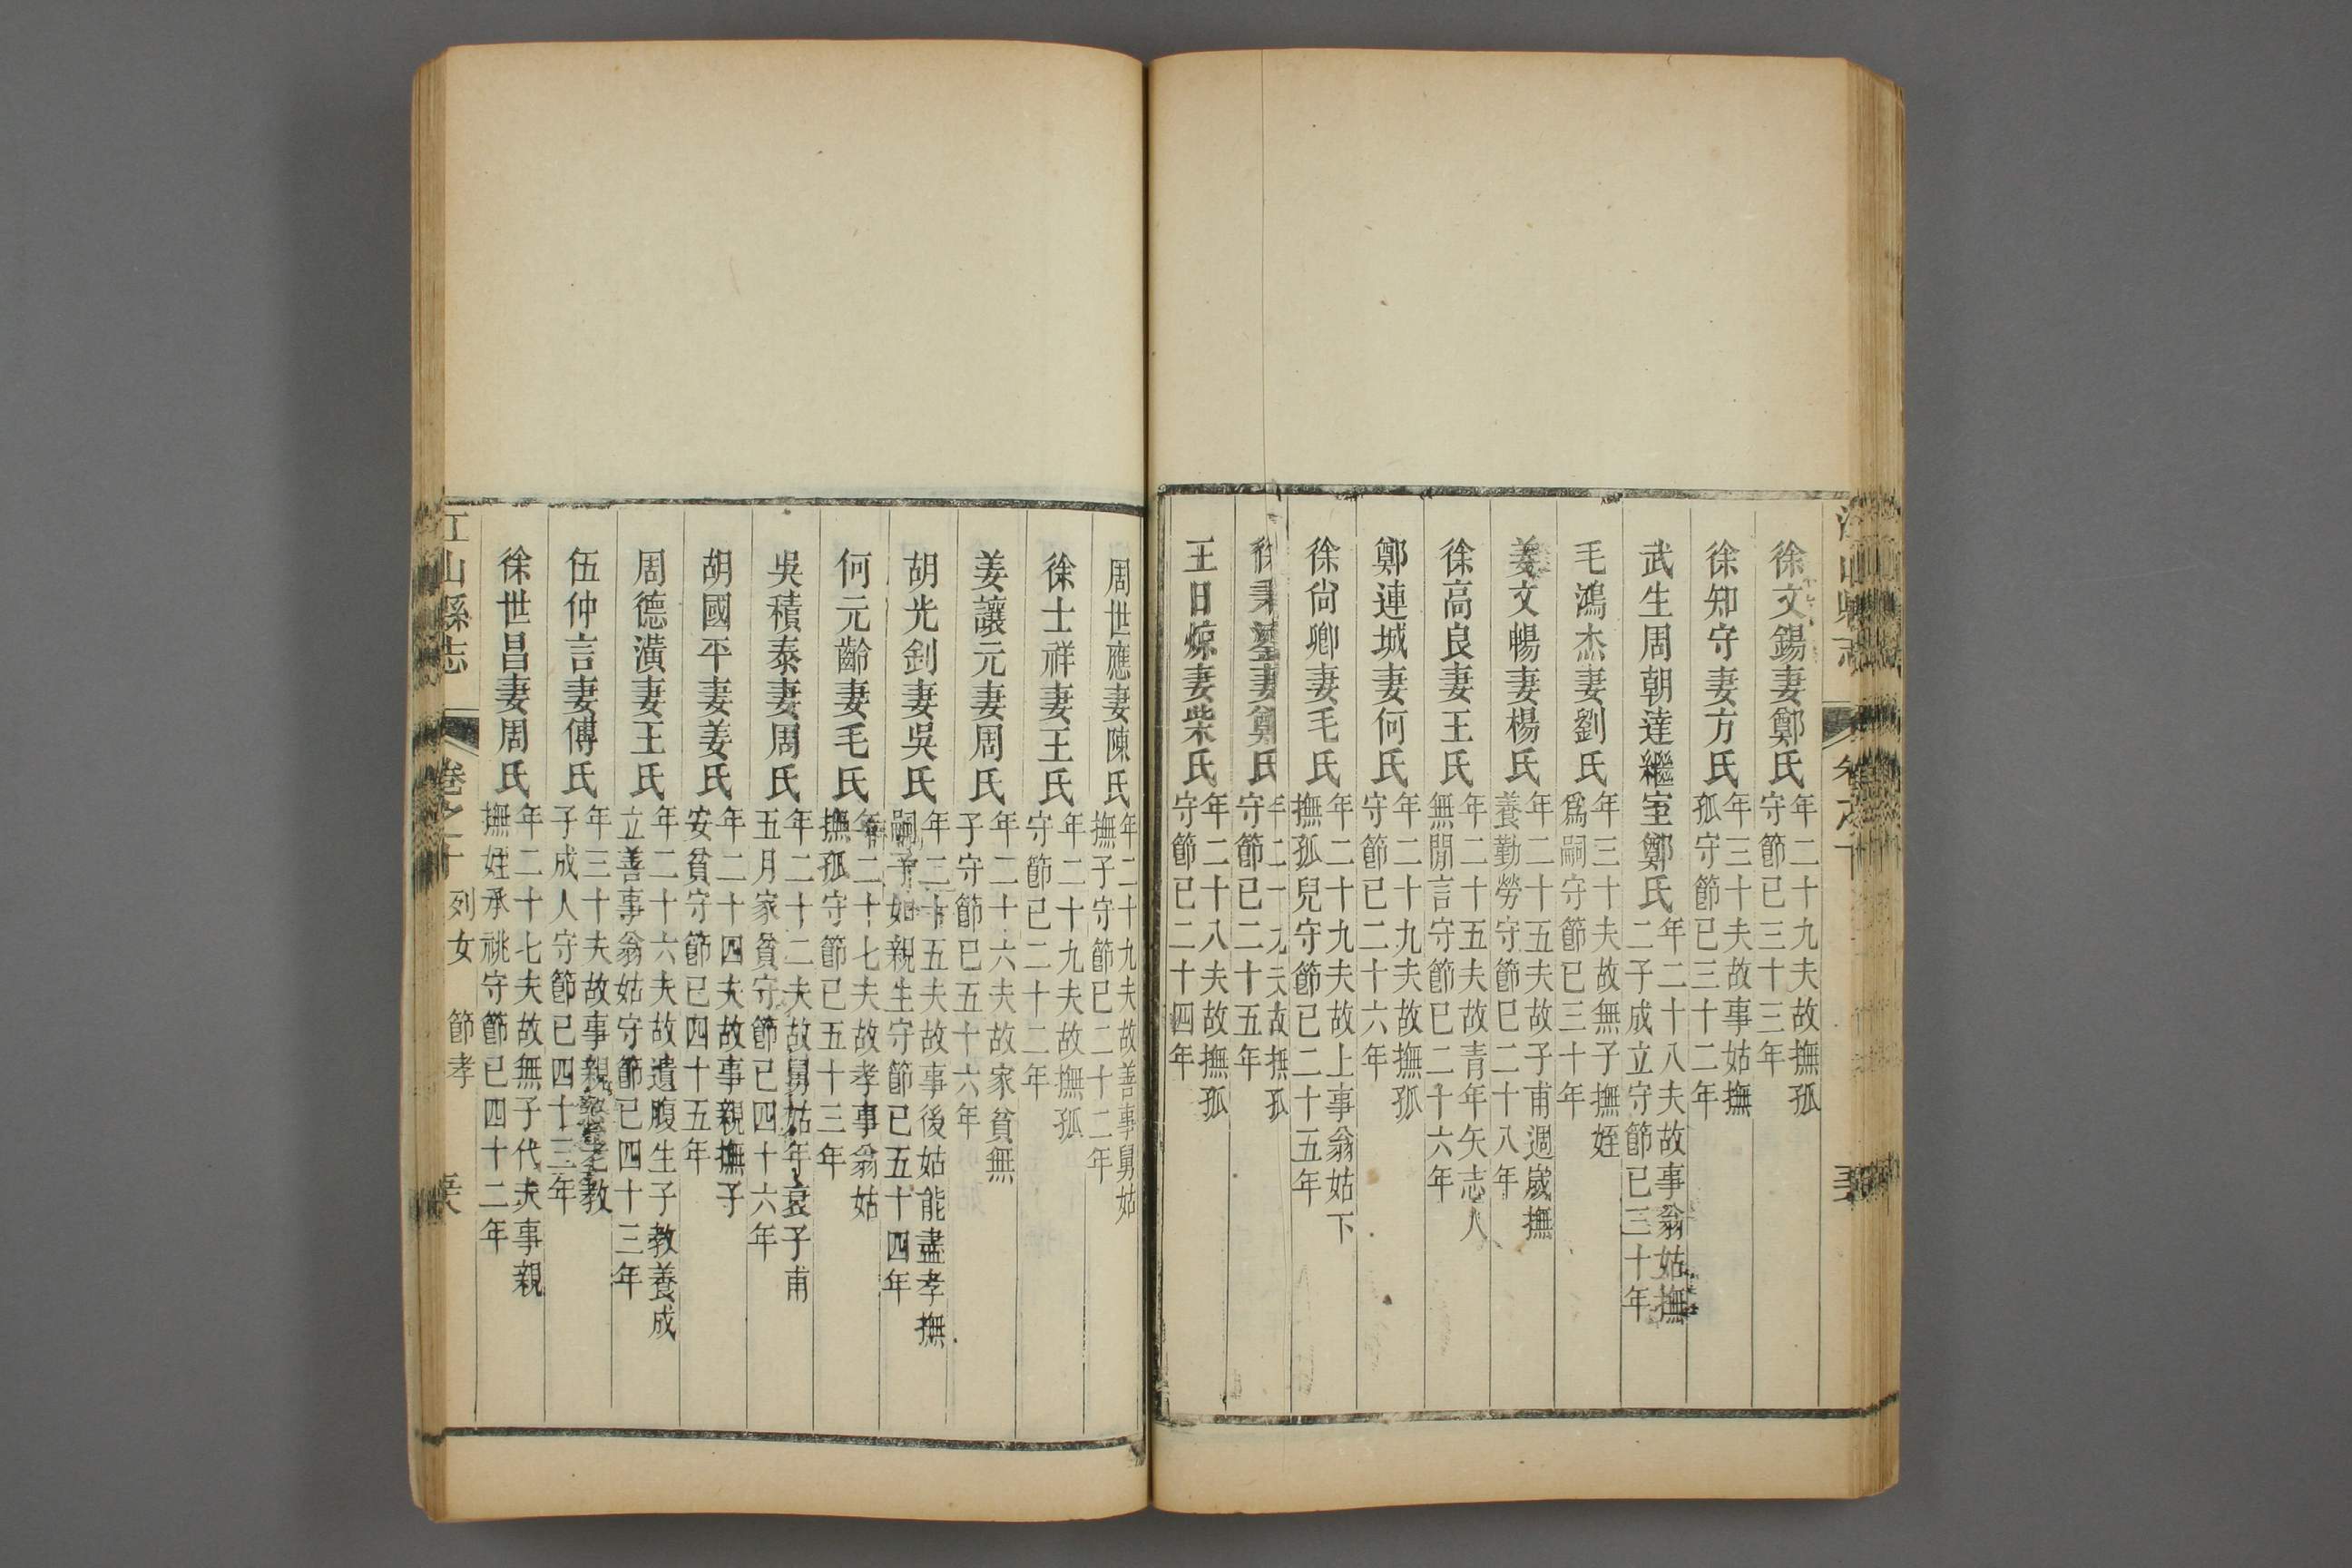 徐文錫妻鄭氏年二十九夫故撫孤守節已三十三年
徐知守妻方氏年三十夫故事姑撫孤守節已三十二年
武生周朝達繼室鄭氏年二十八夫故事翁姑撫二子成立守節已三十年
毛鴻杰妻劉氏年三十夫故無子撫姪爲嗣守節已三十年
姜文暢妻楊氏年二十五夫故子甫週歲撫養勤勞守節已二十八年
徐高良妻王氏年二十五夫故青年矢志人無閒言守節已二十六年
鄭連城妻何氏年二十九夫故撫孤守節已二十六年
徐尙卿妻毛氏年二十九夫故上事翁姑下撫孤兒守節已二十五年
徐秉妻鄭氏年二十九夫故撫孤守節已二十五年
王日煷妻柴氏年二十八夫故撫孤守節已二十四年
周世應妻陳氏年二十九夫故善事舅姑撫子守節已二十二年
徐士祥妻王氏年二十九夫故撫孤守節已二十二年
姜讓元妻周氏年二十六夫故家貧無子守節已五十六年
胡光釗妻吳氏年二十五夫故事後姑能盡孝撫嗣子如親生守節已五十四年
何元齡妻毛氏年二十七夫故孝事翁姑撫孤守節已五十三年
吳積泰妻周氏年二十二夫故舅姑年衰子甫五月家貧守節已四十六年
胡國平妻姜氏年二十四夫故事親撫子安貧守節已四十五年
周德潢妻王氏年二十六夫故遺腹生子教養成立善事翁姑守節已四十三年
伍仲言妻傅氏年三十夫故事親教子成人守節已四十三年
徐世昌妻周氏年二十七夫故無子代夫事親撫姪承祧守節已四十二年
江山縣志 卷之十 列女 節孝